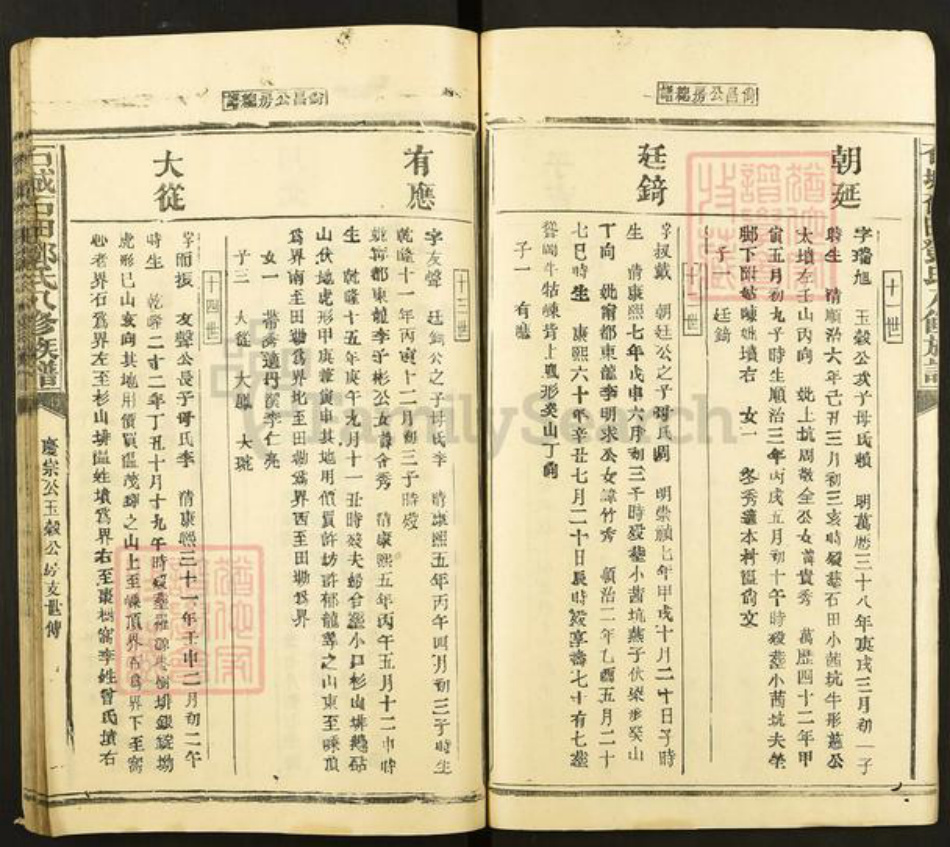 尙昌公房總譜
十一世
朝廷
字瑞旭 玉縠公次子母氏賴 明萬厯三十八年庚戌三月初一子
時生 清順治六年己丑三月初三亥時歿葬石田小茜坑牛形
太墳左壬山丙向 妣上坑周 全公女諱貴秀 萬厯四十二年甲
寅五月初九子時生順治三年丙戌五月初十午時歿葬小茜坑夫塋
墳右 女一 冬秀適本村溫 文
子一 廷錡
十二世
廷錡
字叔戴 朝廷公之子母氏周 明崇禎七年甲戌十月二十日子時
生 清康熙七年戊申六月初三子時歿葬小茜坑燕子伏梁形癸山
丁向 妣甯都東龍李明求公女諱竹秀 順治二年乙酉五月二十
七巳時生 康熙六十年辛丑七月二十日辰時歿享壽七十有七葬
牛牯崠背上鳳形癸山丁向
子一 有應
尙昌公房總譜
十三世
有應
字友聲 廷錡公之子母氏李 清康熙五年丙午四月初三子時生
乾隆十一年丙寅十二月初三子時歿
甯都東龍李子彬公女諱合秀 清康熙五年丙午五月十二申時
生 乾隆十五年庚午九月十一丑時歿夫婦合葬小口杉山排鵝
山伏地虎形甲庚兼寅申其地用價買許 許郁龍等之山東至崠頂
爲界南至田塝爲界北至田塝爲界西至田塝爲界
女一 適丹溪李仁亮
子三 大從 大 大琬
十四世
大從
字而振 友聲公長子母氏李 清康熙三十一年壬申二月初二午
時生 乾隆二十二年丁丑十月十九午時歿葬 排銀錠坳
虎形巳山亥向其地用價買溫茂 之山上至崠頂 界下至窩
心老界石爲界左至杉山排溫姓墳爲界右至棗樹窩李姓曾氏墳右
慶崇公玉縠公 支世傳
石城石田鄭氏八修族譜